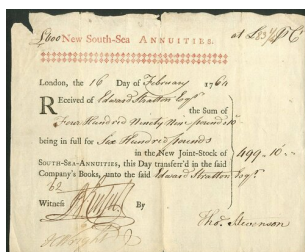 £600 New South-Sea ANNUITIES. at £83¼ P C
London, the 16 Day of February 1760
Received of Edward Stratton Esqr
the Sum of
Four Hundred Ninety Nine pounds 10
being in full for Six Hundred pounds
in the New Joint-Stock of
SOUTH-SEA-ANNUITIES, this Day transferr'd in the said
Company's Books, unto the said Edward Stratton Esqr.
499 - 10 -
Witness By
Tho. Stevenson